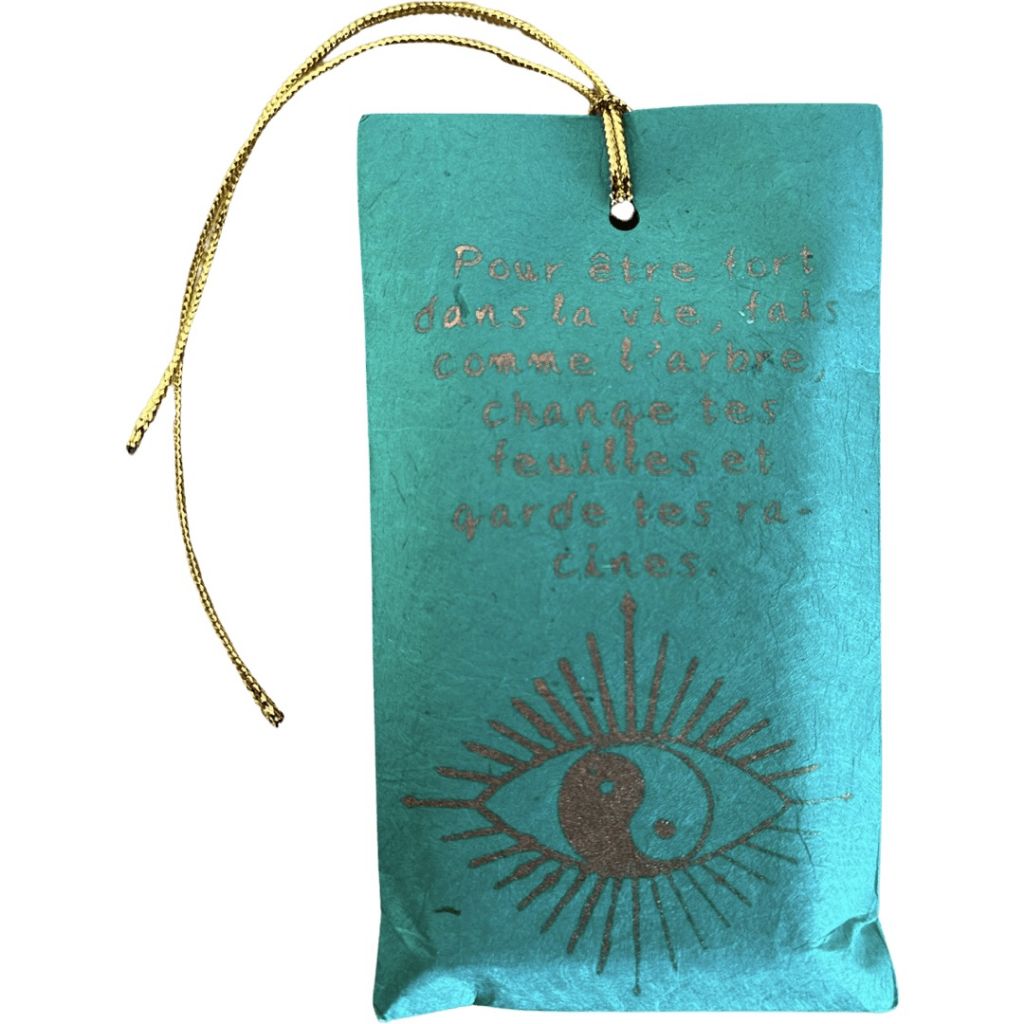 Pour être fort
dans la vie, fais
comme l'arbre,
change tes
feuilles et
garde tes ra-
cines.